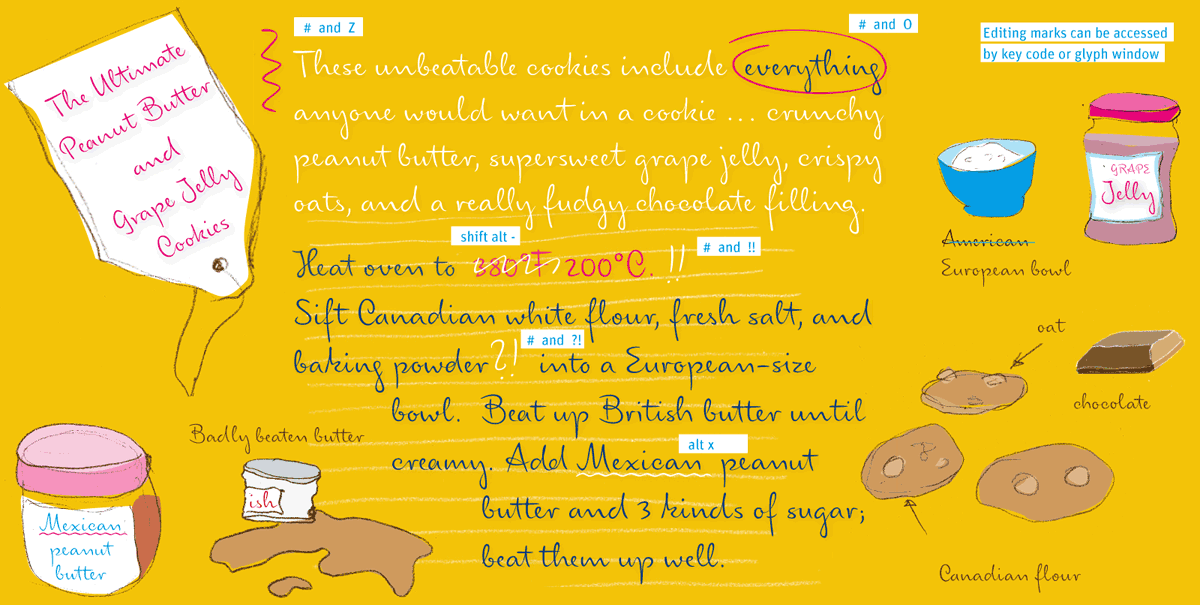 The Ultimate
Peanut Butter
and
Grape Jelly
Cookies
# and Z
# and O
Editing marks can be accessed
by key code or glyph window
These unbeatable cookies include everything
anyone would want in a cookie ... crunchy
peanut butter, supersweet grape jelly, crispy
oats, and a really fudgy chocolate filling.
shift alt -
# and !!
Heat oven to 380°F 200°C. !!
Sift Canadian white flour, fresh salt, and
# and ?!
baking powder ?! into a European-size
bowl. Beat up British butter until
alt x
creamy. Add Mexican peanut
butter and 3 kinds of sugar;
beat them up well.
GRAPE
Jelly
American
European bowl
oat
chocolate
Canadian flour
Badly beaten butter
ish
Mexican
peanut
butter